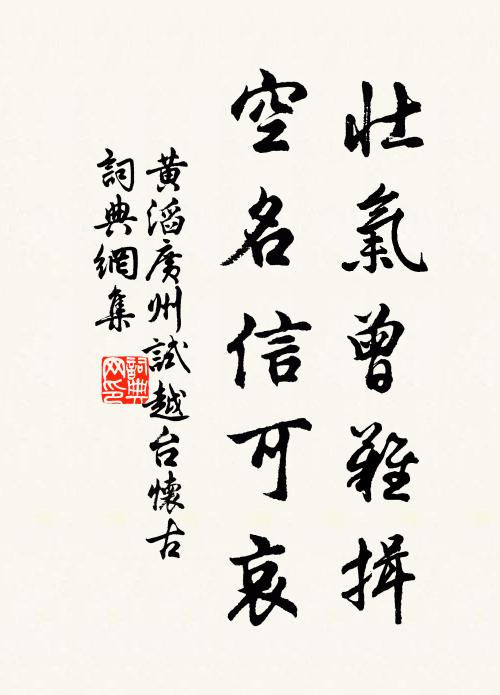 壯氣曾難揖
空名信可哀
黃滔廣州試越台懷古
詞典網集
詞典网印